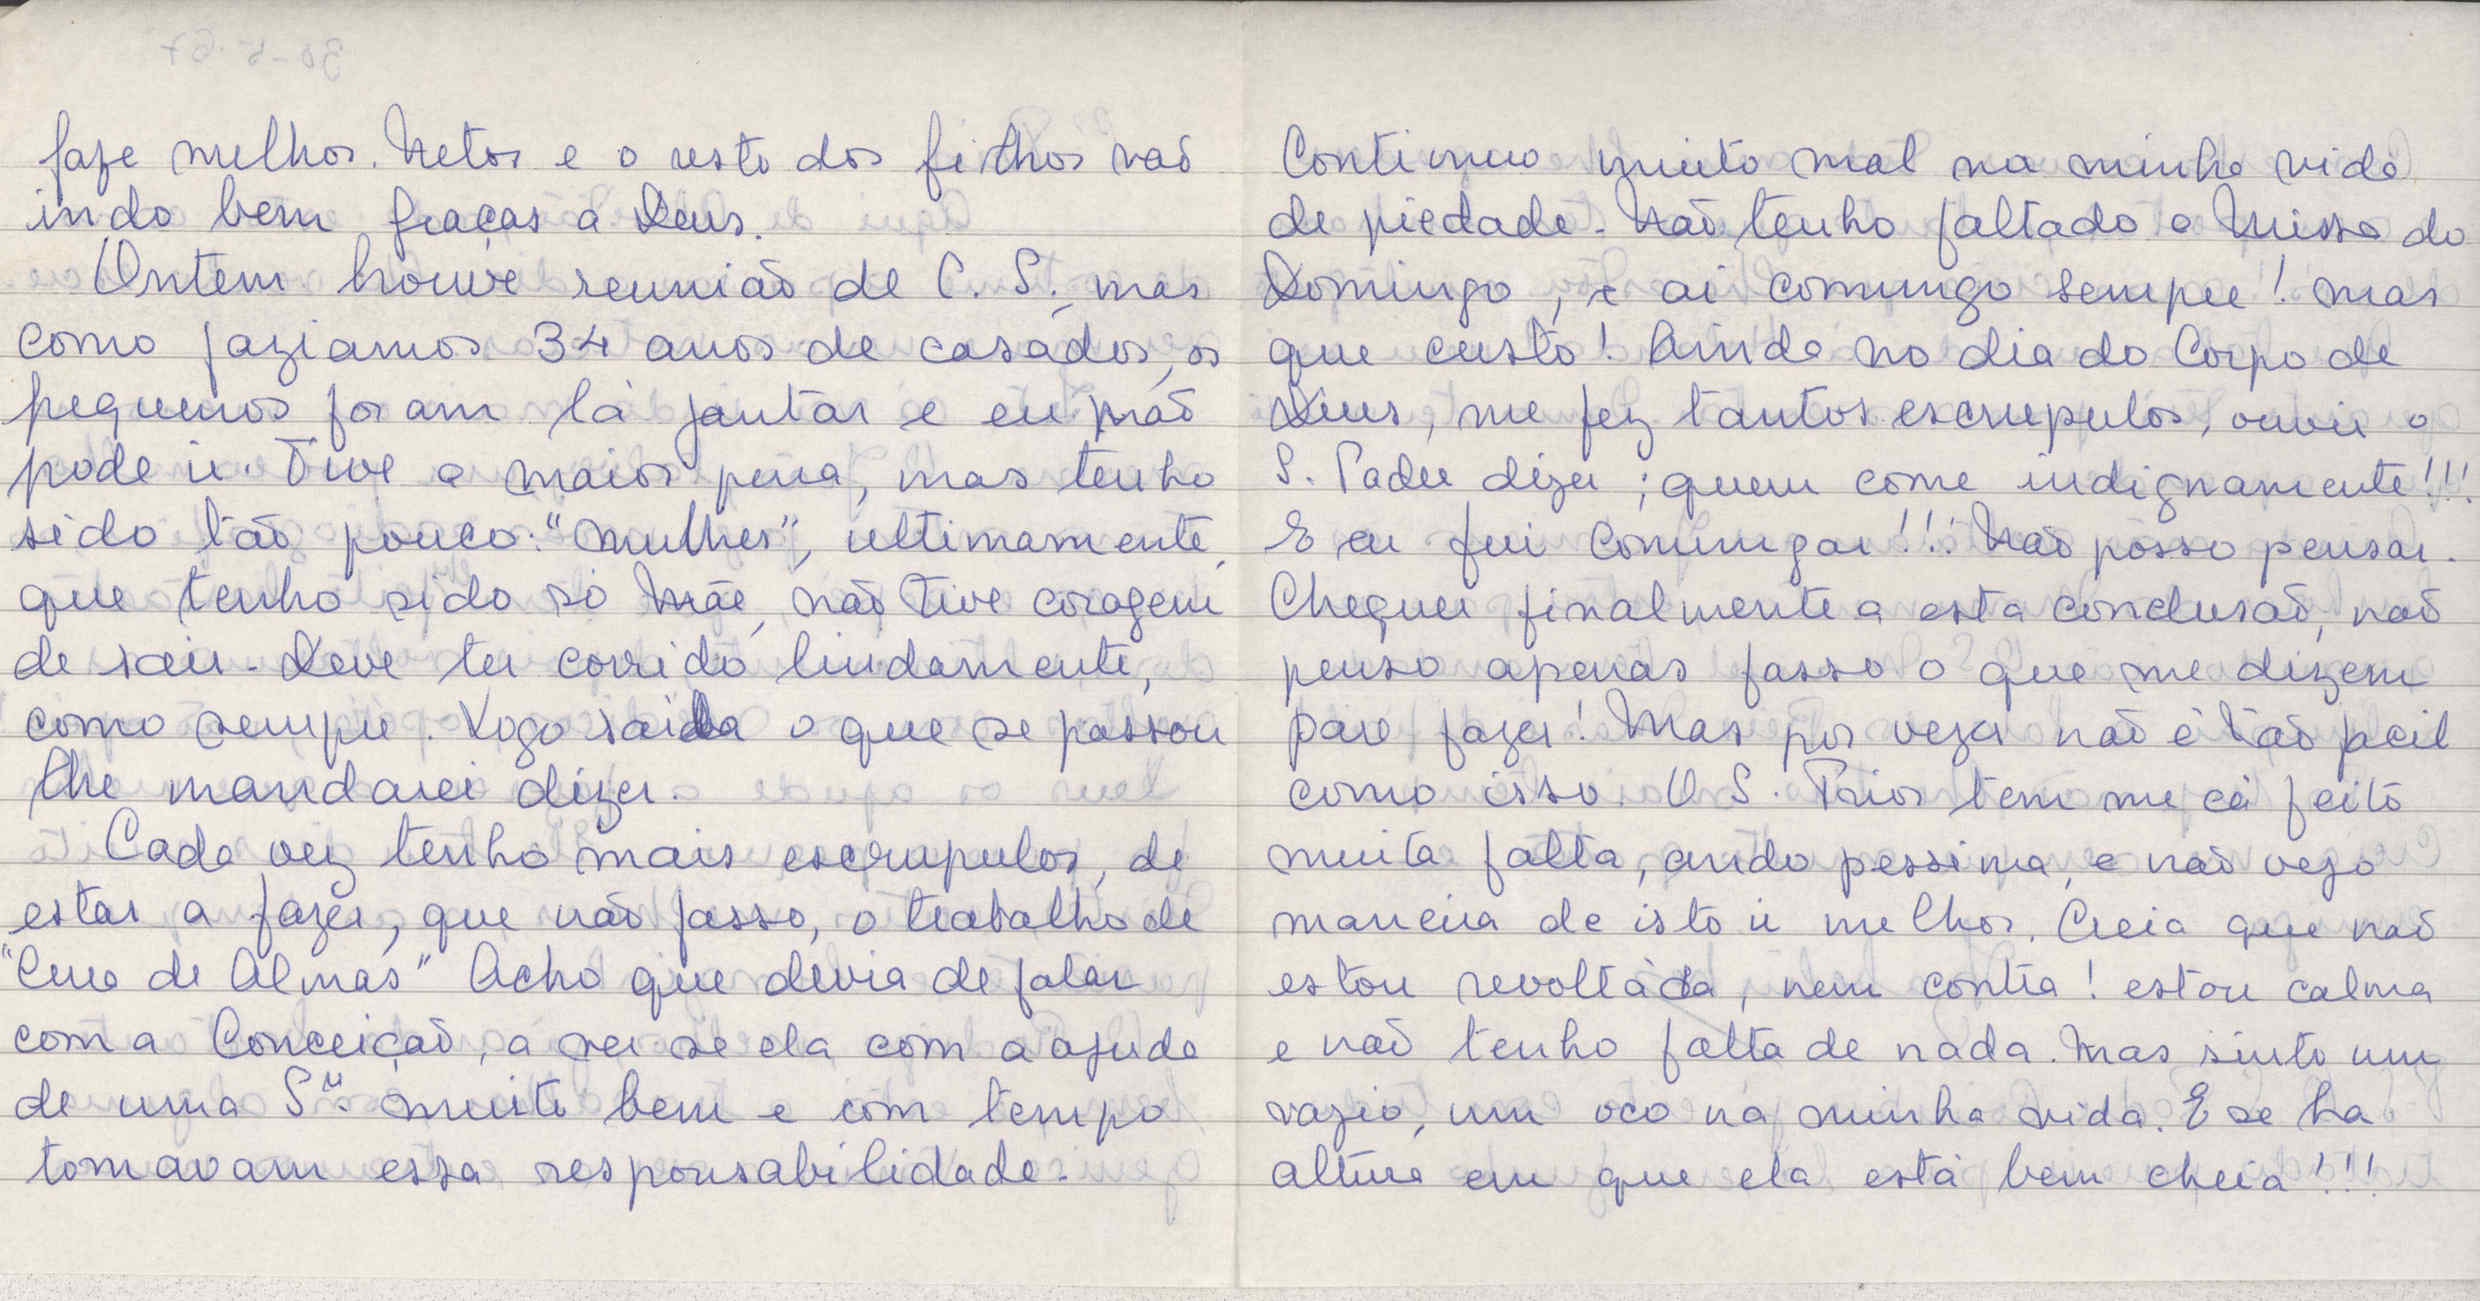 faze melhor. Netos e o resto dos filhos vaõ
indo bem graças a Deus.
Ontem houve reuniaõ de C. S., mas
como faziamos 34 anos de casados, os
pequenos foram lá jantar e eu naõ
pode ir. Tive a maior pena, mas tenho
sido taõ pouco: "mulher", ultimamente,
que tenho sido só Mãe, naõ tive coragem
de sair. Deve ter corrido lindamente,
como sempre. Logo saiba o que se passou
lhe mandarei dizer.
Cada vez tenho mais escrupulos, de
estar a fazer, que naõ fasso, o trabalho de
"Cura de Almas" Acho que devia de falar
com a Conceiçaõ, a ver se ela com a ajuda
de uma Sr.ª muito bem e com tempo
tomavam essa responsabilidade.
Continuo muito mal na minha vida
de piedade. Naõ tenho faltado a Missa do
Domingo, e ai comungo sempre! mas
que custo! Ainda no dia do Corpo de
Deus, me fez tantos escrupulos, ouvir o
S. Padre dizer; quem come indignamente!!!
E eu fui comungar!!! Naõ posso pensar.
Cheguei finalmente a esta conclusaõ, naõ
penso apenas fasso o que me dizem
para fazer! Mas por vezes naõ é taõ facil
como isso. O S. Prior tem me cá feito
muita falta, ando pessima, e naõ vejo
maneira de isto ir melhor. Creia que naõ
estou revoltada, nem contra! estou calma
e naõ tenho falta de nada. Mas sinto um
vazio, um oco na minha vida. E se ha
altura em que ela está bem cheia!!!